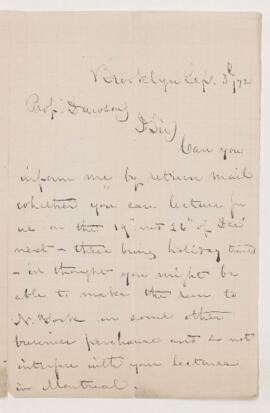 Brooklyn Sep. 3d/72
Prof. Dawson
D Sir
Can you
inform me by return mail
whether you can lecture for
us on the 19" and 26" of Dec
next - these being holiday times
- we thought you might be
able to make the run to
N. York on some other
business perchance and not
interfere with your lectures
in Montreal.